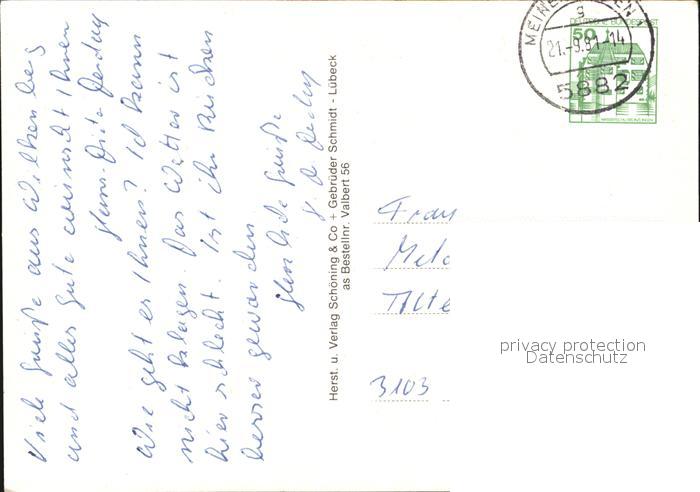 Viele Grüße aus Wiltenberg
und alles Gute wünscht Ihnen
Hans-Dieter
Wie geht es Ihnen? Ich kann
nicht klagen. Das Wetter ist
hier schlecht. Ist ihr Rücken
besser geworden
Grüße
Herst. u. Verlag Schöning & Co + Gebrüder Schmidt - Lübeck
as Bestellnr. Valbert 56
DEUTSCHE BUNDESPOST
50
21.-9.81-14
5882
Frau
Melc
Alte
3103
privacy protection
Datenschutz